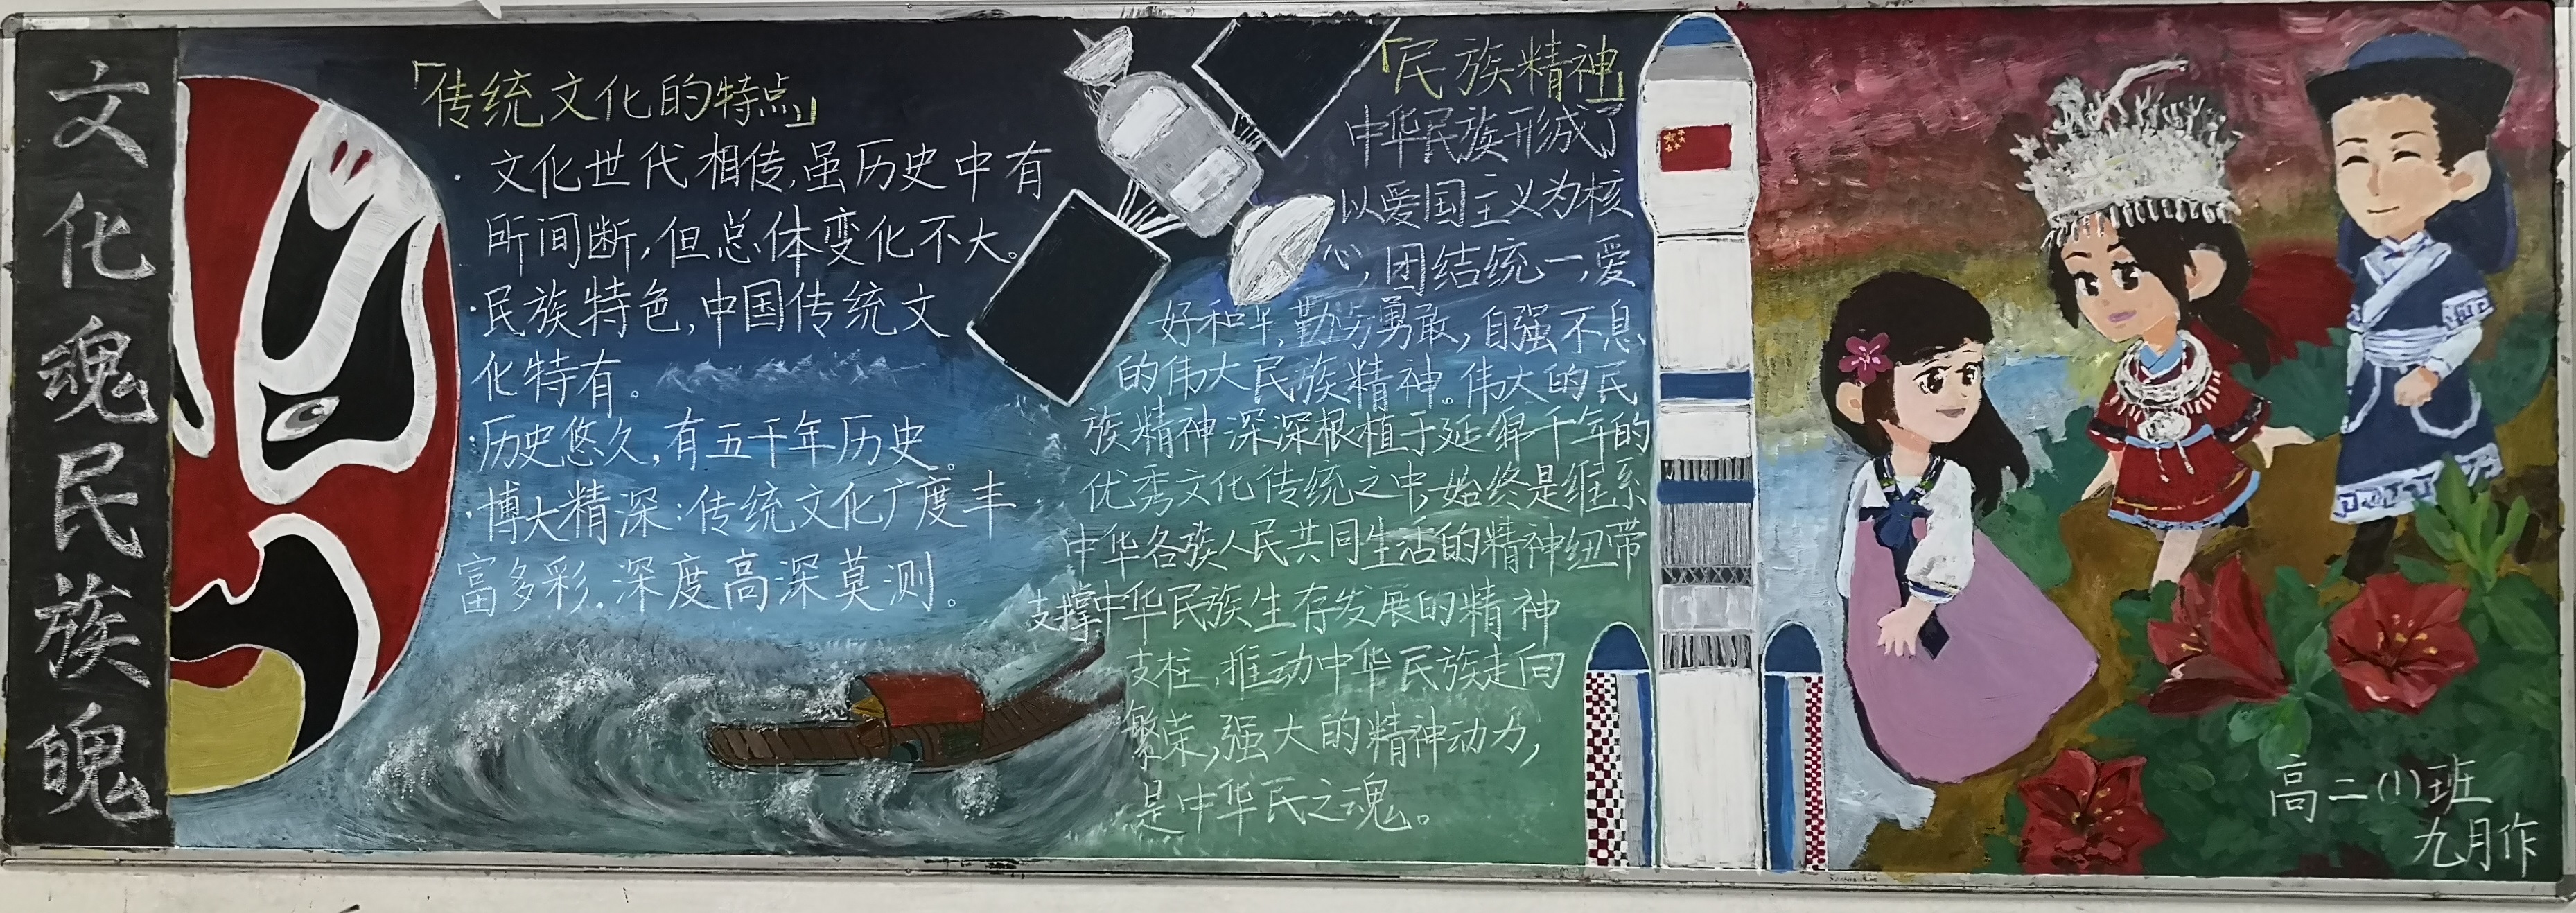 文化魂民族魄
「传统文化的特点」
·文化世代相传,虽历史中有
所间断,但总体变化不大。
·民族特色,中国传统文
化特有。
·历史悠久,有五千年历史。
·博大精深:传统文化广度丰
富多彩.深度高深莫测。
「民族精神」
中华民族形成了
以爱国主义为核
心,团结统一,爱
好和平,勤劳勇敢,自强不息
的伟大民族精神。伟大的民
族精神深深根植于延绵千年的
优秀文化传统之中,始终是维系
中华各族人民共同生活的精神纽带
支撑中华民族生存发展的精神
支柱,推动中华民族走向
繁荣,强大的精神动力,
是中华民之魂。
高二(1)班
九月作